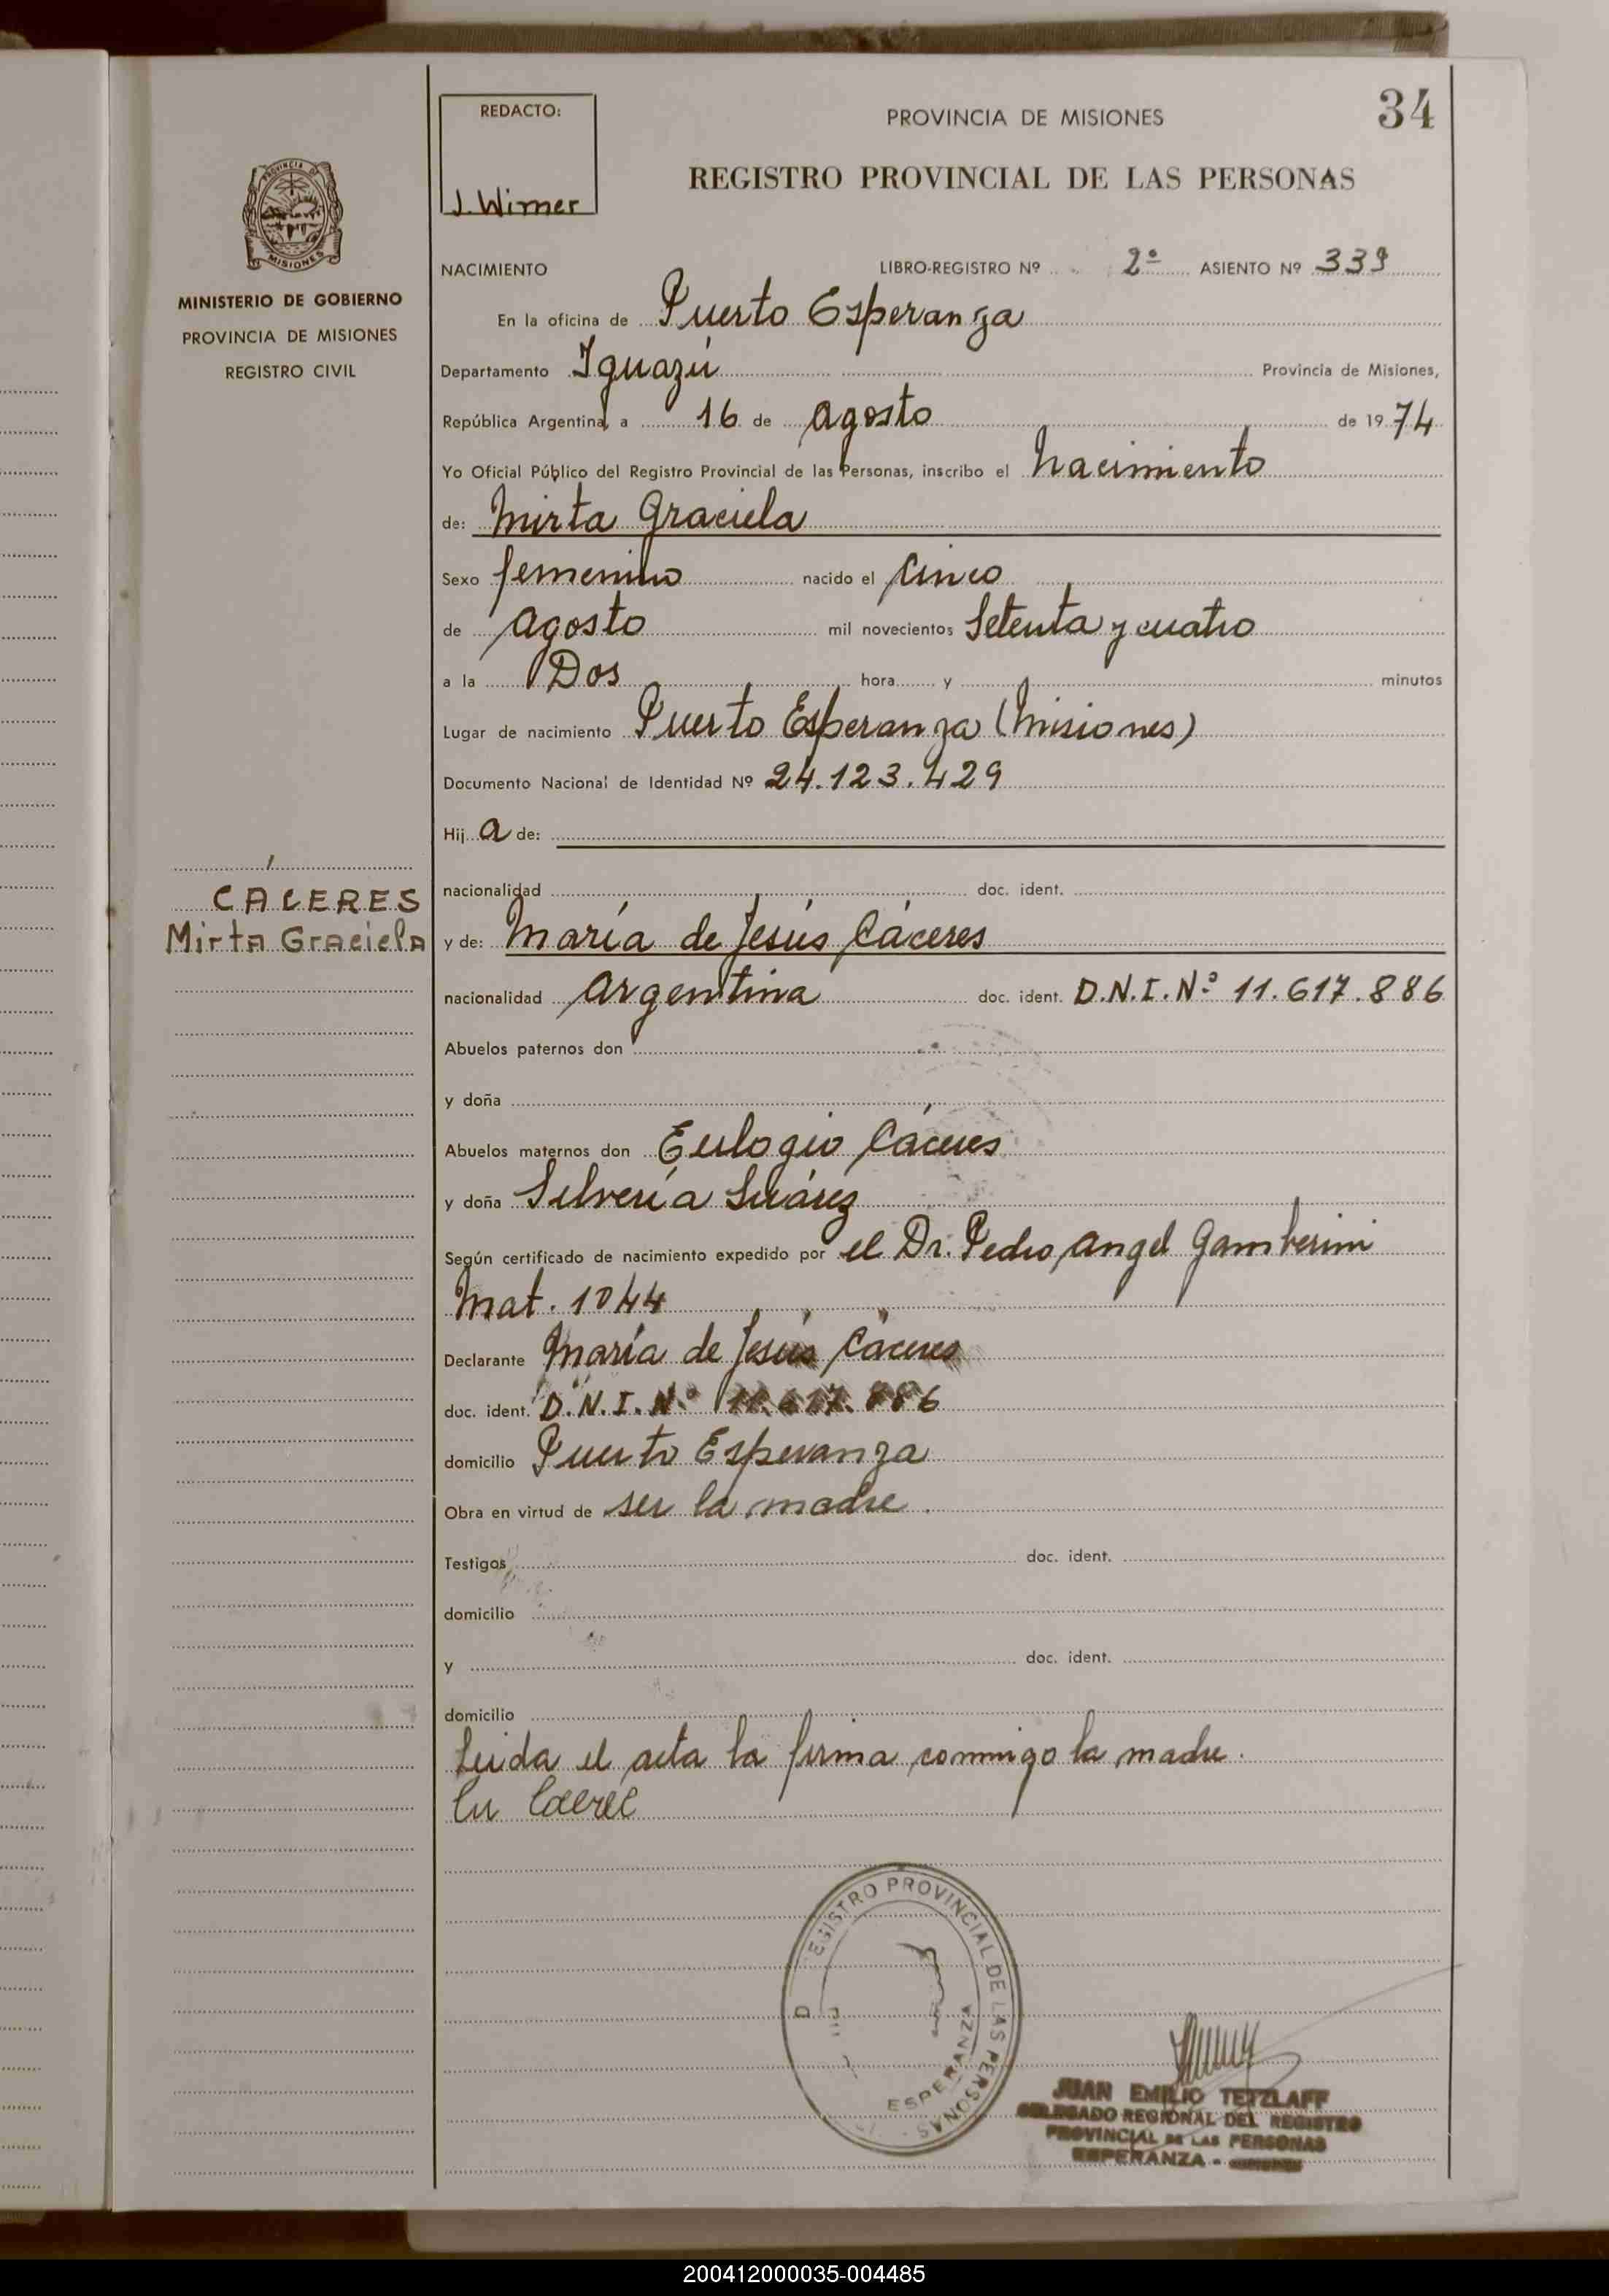 34
REDACTO:
J. Wimer
PROVINCIA DE MISIONES
REGISTRO PROVINCIAL DE LAS PERSONAS
PROVINCIA DE
MISIONES
MINISTERIO DE GOBIERNO
PROVINCIA DE MISIONES
REGISTRO CIVIL
CACERES
Mirta Graciela
NACIMIENTO LIBRO-REGISTRO Nº 2º ASIENTO Nº 339
En la oficina de Puerto Esperanza
Departamento Iguazú Provincia de Misiones,
República Argentina, a 16 de Agosto de 1974
Yo Oficial Público del Registro Provincial de las Personas, inscribo el Nacimiento
de: Mirta Graciela
Sexo femenino nacido el Cinco
de Agosto mil novecientos Setenta y cuatro
a la Dos hora y minutos
Lugar de nacimiento Puerto Esperanza (Misiones)
Documento Nacional de Identidad Nº 24.123.429
Hij a de:
nacionalidad doc. ident.
y de: María de Jesús Cáceres
nacionalidad Argentina doc. ident. D.N.I.Nº 11.617.886
Abuelos paternos don
y doña
Abuelos maternos don Eulogio Cáceres
y doña Silveria Suárez
Según certificado de nacimiento expedido por el Dr. Pedro Angel Gamberini
Mat. 1044
Declarante María de Jesús Cáceres
doc. ident. D.N.I. Nº 11.617.886
domicilio Puerto Esperanza
Obra en virtud de ser la madre.
Testigos doc. ident.
domicilio
y doc. ident.
domicilio
Leída el acta la firma conmigo la madre.
REGISTRO PROVINCIAL DE LAS PERSONAS
ESPERANZA
JUAN EMILIO TETZLAFF
DELEGADO REGIONAL DEL REGISTRO
PROVINCIAL DE LAS PERSONAS
ESPERANZA -
200412000035-004485